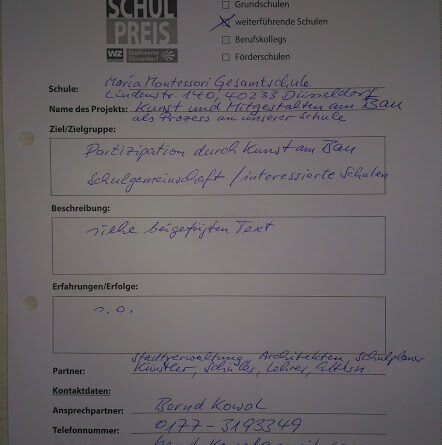 SCHUL
PREIS
WZ Stadtwerke Düsseldorf
Grundschulen
weiterführende Schulen
Berufskollegs
Förderschulen
Schule: Maria Montessori Gesamtschule
Lindenstr. 140, 40233 Düsseldorf
Name des Projekts: Kunst und Mitgestalten am Bau
als Prozess an unserer Schule
Ziel/Zielgruppe:
Partizipation durch Kunst am Bau
Schulgemeinschaft / interessierte Schulen
Beschreibung:
siehe beigefügten Text
Erfahrungen/Erfolge:
s.o.
Stadtverwaltung, Architekten, Schulplaner
Partner: Künstler, Schüler, Lehrer, Eltern.
Kontaktdaten:
Ansprechpartner: Bernd Kowol
Telefonnummer: 0177-3193349